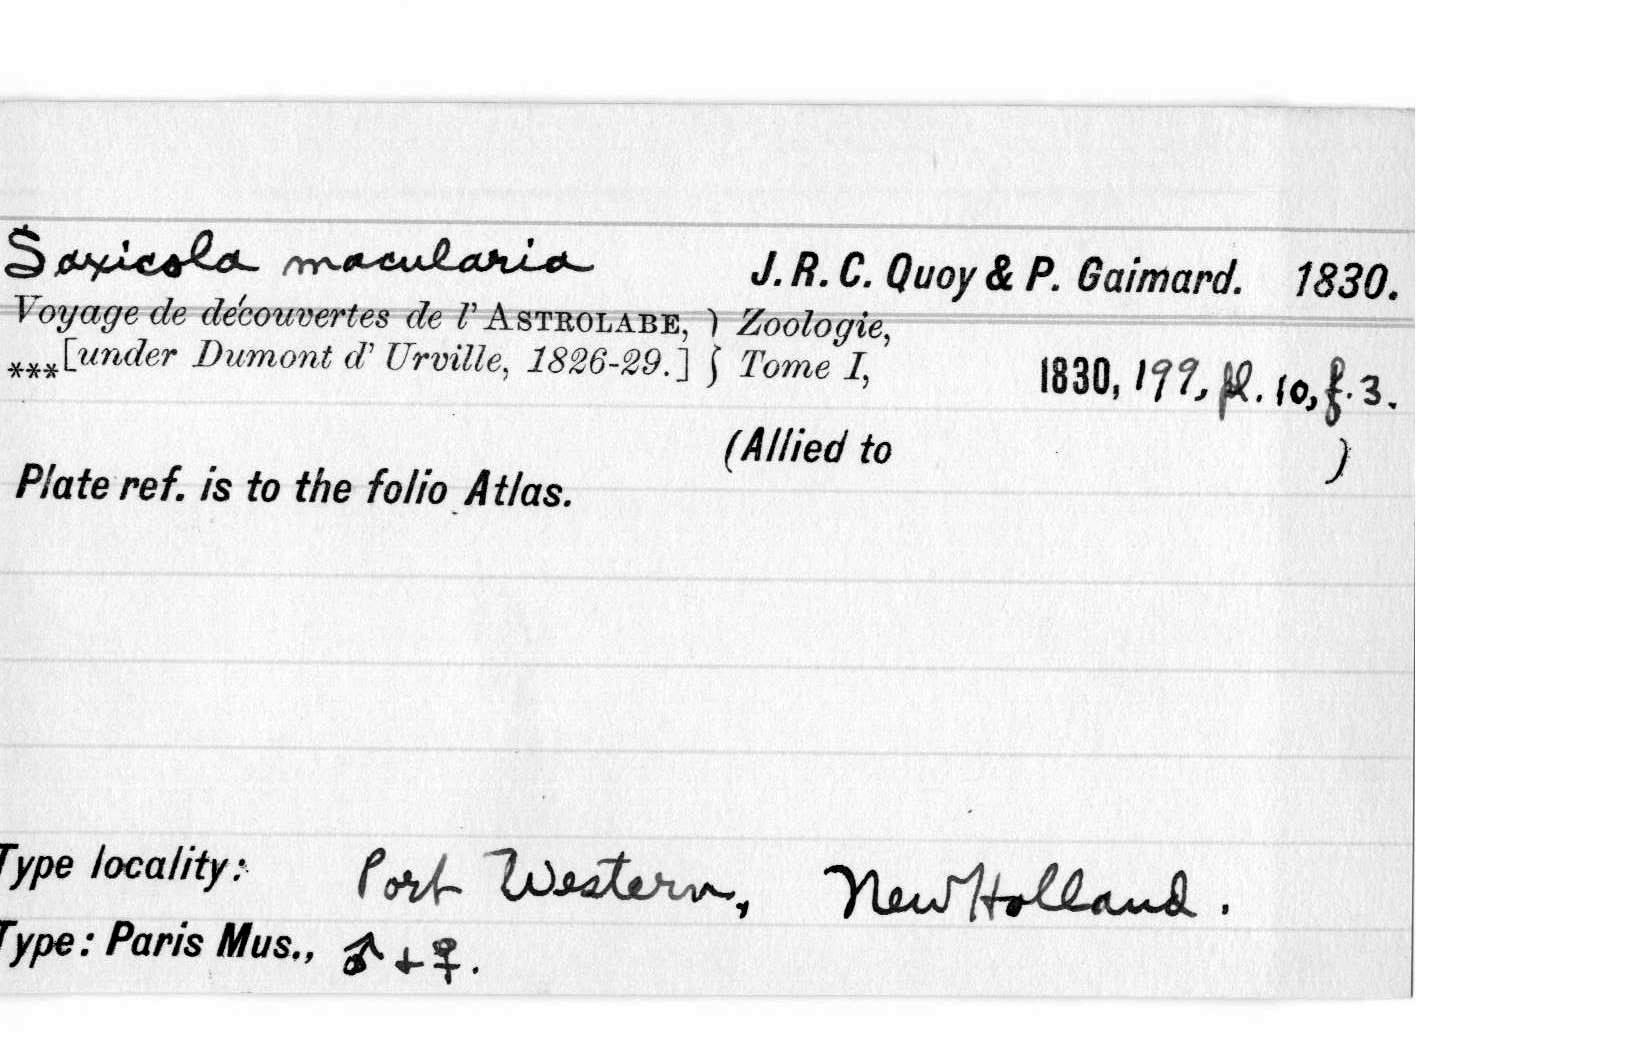 Saxicola macularia J. R. C. Quoy & P. Gaimard. 1830.
Voyage de découvertes de l' ASTROLABE, } Zoologie,
***[under Dumont d' Urville, 1826-29.] } Tome I, 1830, 199, pl. 10, f. 3.
(Allied to )
Plate ref. is to the folio Atlas.
Type locality: Port Western, New Holland.
Type: Paris Mus., ♂ + ♀.